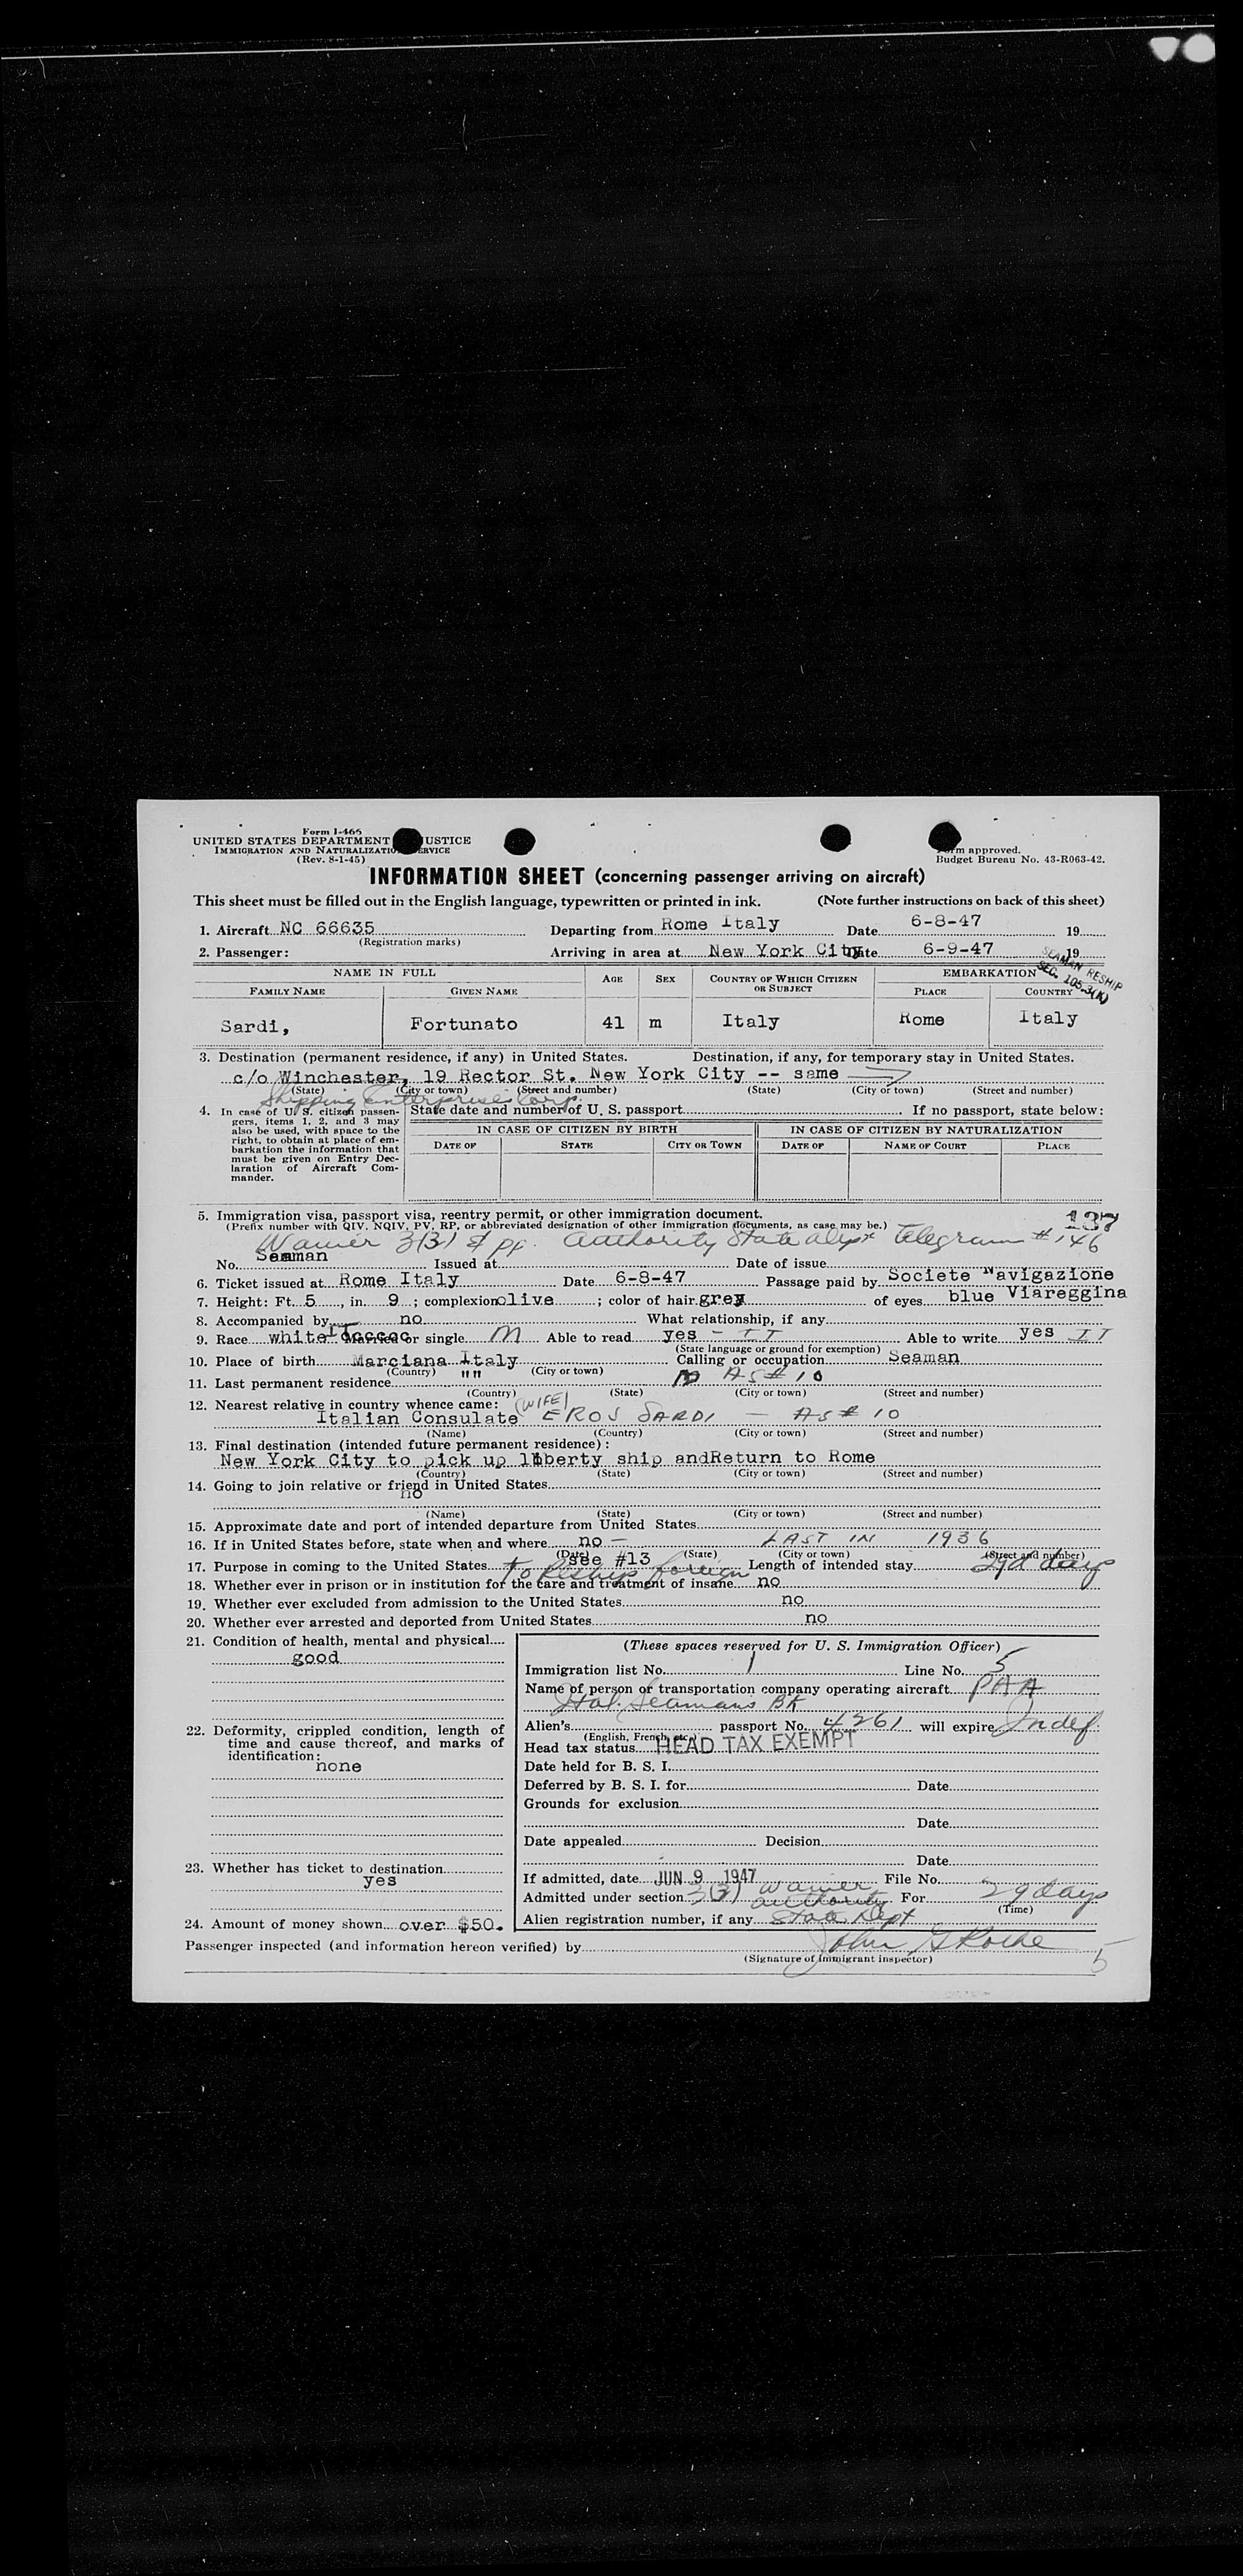 Form I-466
UNITED STATES DEPARTMENT JUSTICE
IMMIGRATION AND NATURALIZATION SERVICE
(Rev. 8-1-45)
Form approved.
Budget Bureau No. 43-R063-42.
INFORMATION SHEET (concerning passenger arriving on aircraft)
This sheet must be filled out in the English language, typewritten or printed in ink. (Note further instructions on back of this sheet)
1. Aircraft NC 66635 Departing from Rome Italy Date 6-8-47 19
(Registration marks)
2. Passenger: Arriving in area at New York City Date 6-9-47 19
SEAMAN RESHIP
SEC. 105.3(K)
NAME IN FULL AGE SEX COUNTRY OF WHICH CITIZEN OR SUBJECT EMBARKATION
FAMILY NAME GIVEN NAME PLACE COUNTRY
Sardi, Fortunato 41 m Italy Rome Italy
3. Destination (permanent residence, if any) in United States. Destination, if any, for temporary stay in United States.
c/o Winchester, 19 Rector St. New York City -- same
(State) (City or town) (Street and number) (State) (City or town) (Street and number)
Shipping Enterprises Corp.
4. In case of U. S. citizen passengers, items 1, 2, and 3 may also be used, with space to the right, to obtain at place of embarkation the information that must be given on Entry Declaration of Aircraft Commander.
State date and number of U. S. passport If no passport, state below:
IN CASE OF CITIZEN BY BIRTH IN CASE OF CITIZEN BY NATURALIZATION
DATE OF STATE CITY OR TOWN DATE OF NAME OF COURT PLACE
5. Immigration visa, passport visa, reentry permit, or other immigration document. 137
(Prefix number with QIV, NQIV, PV, RP, or abbreviated designation of other immigration documents, as case may be.)
Waiver 3(3) & pp. Authority State Dept Telegram # 146
No. Seaman Issued at Date of issue
6. Ticket issued at Rome Italy Date 6-8-47 Passage paid by Societe Navigazione
7. Height: Ft. 5, in. 9; complexion olive; color of hair grey of eyes blue Viareggina
8. Accompanied by no What relationship, if any
9. Race white IT Married or single M Able to read yes - IT Able to write yes IT
(State language or ground for exemption)
10. Place of birth Marciana Italy Calling or occupation Seaman
(Country) (City or town)
11. Last permanent residence "" AS # 10
(Country) (State) (City or town) (Street and number)
12. Nearest relative in country whence came: (WIFE)
Italian Consulate EROS SARDI - AS # 10
(Name) (Country) (City or town) (Street and number)
13. Final destination (intended future permanent residence):
New York City to pick up liberty ship andReturn to Rome
(Country) (State) (City or town) (Street and number)
14. Going to join relative or friend in United States
no
(Name) (State) (City or town) (Street and number)
15. Approximate date and port of intended departure from United States
16. If in United States before, state when and where no - LAST IN 1936
(Date) (State) (City or town) (Street and number)
17. Purpose in coming to the United States see #13 To Reship foreign Length of intended stay 29 days
18. Whether ever in prison or in institution for the care and treatment of insane no
19. Whether ever excluded from admission to the United States no
20. Whether ever arrested and deported from United States no
21. Condition of health, mental and physical
good
22. Deformity, crippled condition, length of time and cause thereof, and marks of identification:
none
23. Whether has ticket to destination
yes
24. Amount of money shown over $50.
(These spaces reserved for U. S. Immigration Officer)
Immigration list No. 1 Line No. 5
Name of person or transportation company operating aircraft PAA
Ital. Seamans BK
Alien's passport No. 4261 will expire Indef.
(English, French, etc.)
Head tax status HEAD TAX EXEMPT
Date held for B. S. I.
Deferred by B. S. I. for Date
Grounds for exclusion
Date
Date appealed Decision
Date
If admitted, date JUN 9 1947 File No.
Admitted under section 3(3) Waiver authority For 29 days
(Time)
Alien registration number, if any State Dept
Passenger inspected (and information hereon verified) by John G Roche
(Signature of immigrant inspector)
5